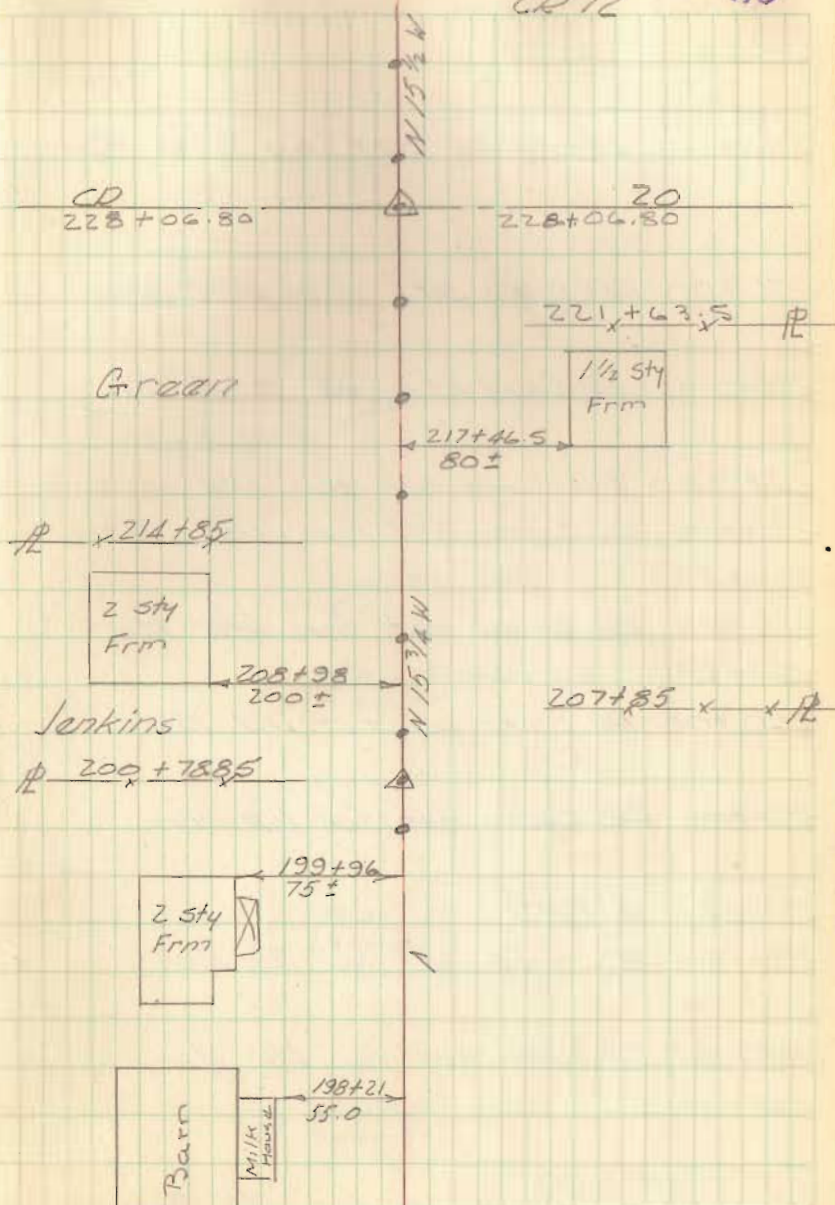 N 15 ½ W
CD 20
228+06.80 228+06.80
221+63.5 PL
1½ Sty
Frm
Green
217+46.5
80±
PL 214+85
2 Sty
Frm
N 15 ¾ W
208+98
200±
207+85 PL
Jenkins
PL 200+78.85
199+96
75±
2 Sty
Frm
198+21
55.0
Milk
House
Barn